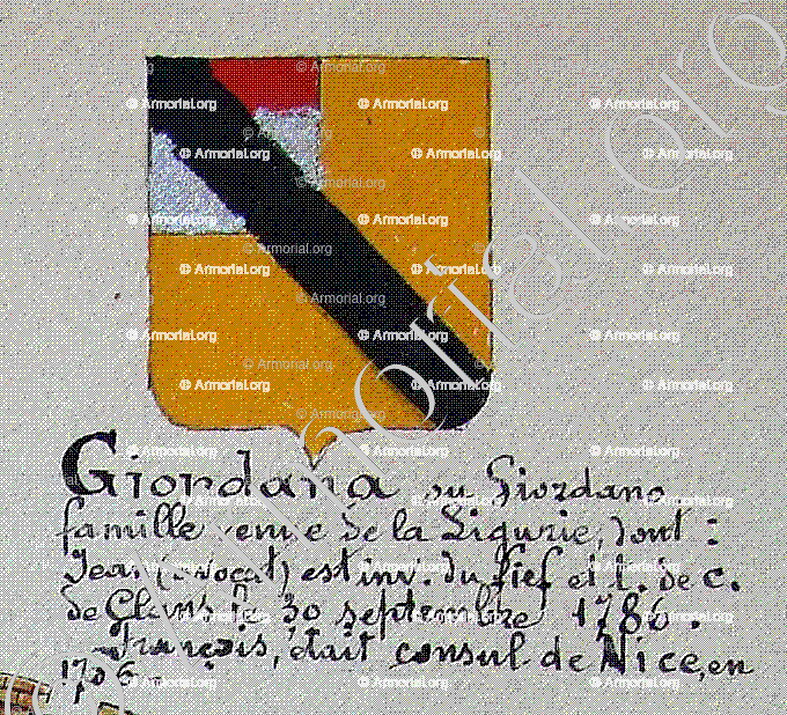 © Armorial.org
Giordana ou Giordano
famille venue de la Ligurie, dont :
Jean (avocat) est inv. du fief et t. de c.
de Clans le 30 septembre 1786.
François, était consul de Nice, en
1706